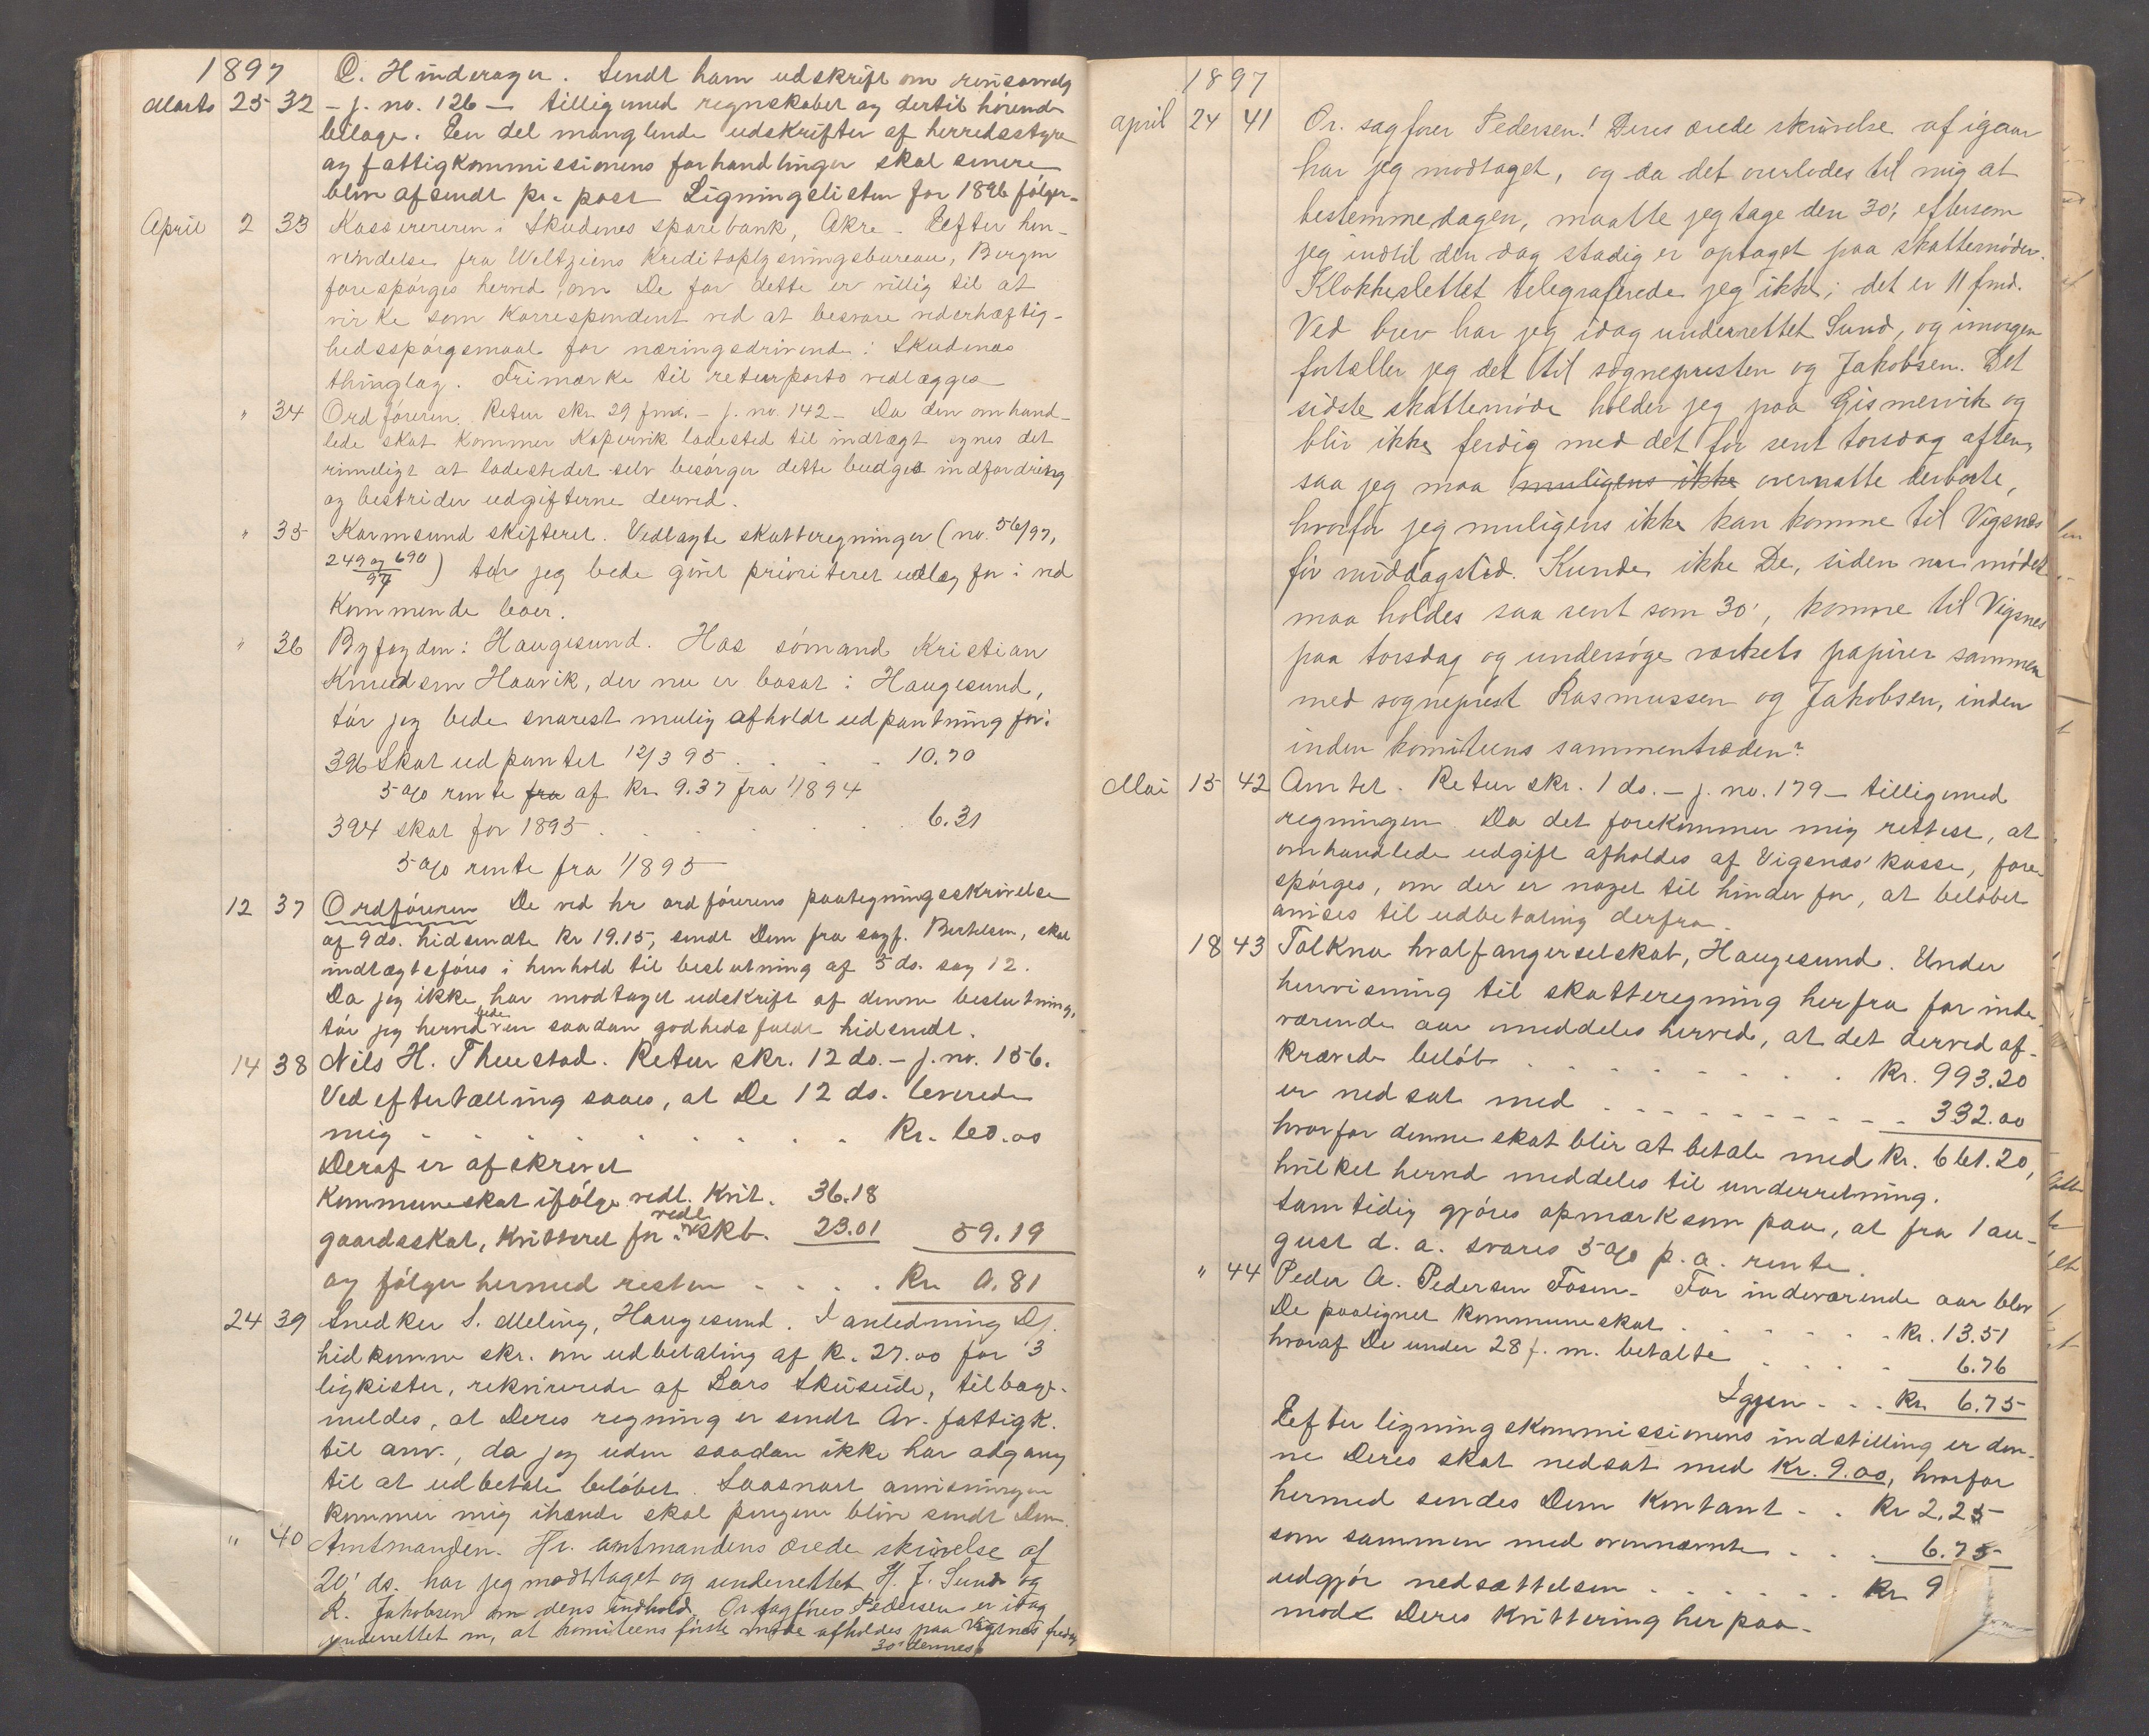 1897
O. Hinderager. Sendt ham udskrift om revisorvalg
Marts 25 32 - j. no. 126 - tilligemed regnskabet og dertil hørende
bilage. Een del manglende udskrifter af herredsstyre
og fattigkommissionens forhandlinger skal senere
blive afsendt pr. post Ligningslisten for 1896 følger.
April 2 33 Kassereren i Skudenes sparebank, Akre. Eefter hen-
vendelse fra Weltziens Kreditoplysningsbureau, Bergen
forespørges herved, om De for dette er villig til at
virke som Korrespondent ved at besvare vederhæftig-
hedsspørgsmaal for næringsdrivende i Skudenes
thinglag. Frimærke til returporto vedlægges
" 34 Ordføreren. Retur skr. 29 fmd. - j. no. 142 - Da den omhand-
lede skat kommer Kopervik ladested til indtægt synes det
rimeligt at ladestedet selv besørger dette budgets indfordring
og bestrider udgifterne derved.
" 35 Karmsund skifteret. Vedlagte skatteregninger (no. 56/97,
249 og 690/97) tør jeg bede givet prioriteret udlæg for i ved
kommende boer.
" 36 Byfogden i Haugesund. Hos sømand Kristian
Knudsen Haavik, der nu er bosat i Haugesund,
tør jeg bede snarest mulig afholdt udpantning for:
396 Skat udpantet 12/3 95 . . . . 10.70
5% rente fra af Kr. 9.37 fra 1/8 94
394 skat for 1895 . . . . . . 6.31
5% rente fra 1/8 95
12 37 Ordføreren De ved hr ordførerens paategningsskrivelse
af 9 ds. hidsendte Kr 19.15, sendt Dem fra sagf. Bertelsen, skal
indtægtsføres i henhold til beslutning af 5 ds. sag 12.
Da jeg ikke har modtaget udskrift af denne beslutning,
tør jeg herved bede en saadan godhedsfuldt hidsendt.
14 38 Nils H. Thuestad. Retur skr. 12 ds. - j. no. 156.
Ved eftertælling saaes, at De 12 ds. leverede
mig . . . . . . . . . Kr. 60.00
Deraf er afskrevet
Kommuneskat ifølge vedl. Kvit. 36.18
gaardsskat, Kvitteret for i vedl. skb. 23.01 59.19
og følger hermed resten . . . . Kr 0.81
24 39 Snedker S. Meling, Haugesund. I anledning Dj.
hidkomne skr. om udbetaling af K. 27.00 for 3
ligkister, rekvirerede af Lars Skiseide, tilbage-
meldes, at Deres regning er sendt Av. fattigk.
til anv., da jeg uden saadan ikke har adgang
til at udbetale beløbet. Saasnart anvisningen
kommer mig ihænde skal pengene blive sendt Dem.
" 40 Amtmanden. Hr. amtmandens ærede skrivelse af
20' ds. har jeg modttaget og underrettet H. J. Sund og
R. Jakobsen om dens indhold. Or sagfører Pedersen er idag
underrettet om, at komiteens første møde afholdes paa Vigsnes fredag
30' dennes
1897
april 24 41 Or. sagfører Pedersen! Deres ærede skrivelse af igaar
har jeg modtaget, og da det overlodes til mig at
bestemme dagen, maatte jeg tage den 30', eftersom
jeg indtil den dag stadig er optaget paa skattemøder.
Klokkeslettet telegraferede jeg ikke; det er 11 fmd.
Ved brev har jeg idag underrettet Sund, og imorgen
fortæller jeg det til sognepresten og Jakobsen. Det
sidste skattemøde holder jeg paa Gismervik og
blir ikke ferdig med det før sent torsdag aften,
saa jeg maa muligens ikke overnatte derborte,
hvorfor jeg muligens ikke kan komme til Vigsnes
før middagstid. Kunde ikke De, siden nu mødet
maa holdes saa sent som 30', komme til Vigsnes
paa torsdag og undersøge værkets papirer sammen
med sogneprest Rasmussen og Jakobsen, inden
inden komiteens sammentræden?
Mai 15 42 Amtet. Retur skr. 1 ds. - j. no. 179 - tilligemed
regningen Da det forekommer mig rettest, at
omhandlede udgift afholdes af Vigsnæs' kasse, fore-
spørges, om der er noget til hinder for, at beløbet
anvises til udbetaling derfra.
18 43 Talkna hvalfangerselskab, Haugesund. Under
henvisning til skatteregning herfra for inde-
værende aar meddeles herved, at det derved af-
krævede beløb . . . . . . . . . Kr. 993.20
er nedsat med . . . . . . . . . 332.00
hvorfor denne skat blir at betale med Kr. 661.20,
hvilket herved meddeles til underretning.
Samtidig gjøres opmærksom paa, at fra 1 au-
gust d. a. svares 5% p. a. rente.
" 44 Peder A. Pedersen Fosen. For indeværende aar blev
De paalignet Kommuneskat . . . . . . Kr. 13.51
hvoraf De under 28 f. m. betalte . . . . 6.76
Igjen . . . Kr. 6.75
Eefter ligningskommissionens indstilling er den-
ne Deres skat nedsat med Kr. 9.00, hvorfor
hermed sendes Dem Kontant . . Kr 2.25
som sammen med ovennævnte . . . 6.75
udgjør nedsættelsen . . . . . . Kr 9
mod Deres Kvittering herpaa.